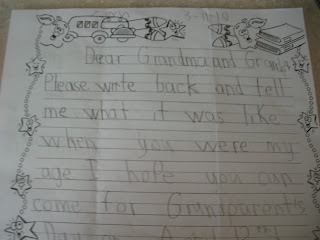 Dear Grandma and Grandpa
Please write back and tell
me what it was like
when you were my
age I hope you can
come for Granparent's
Day on April 12th